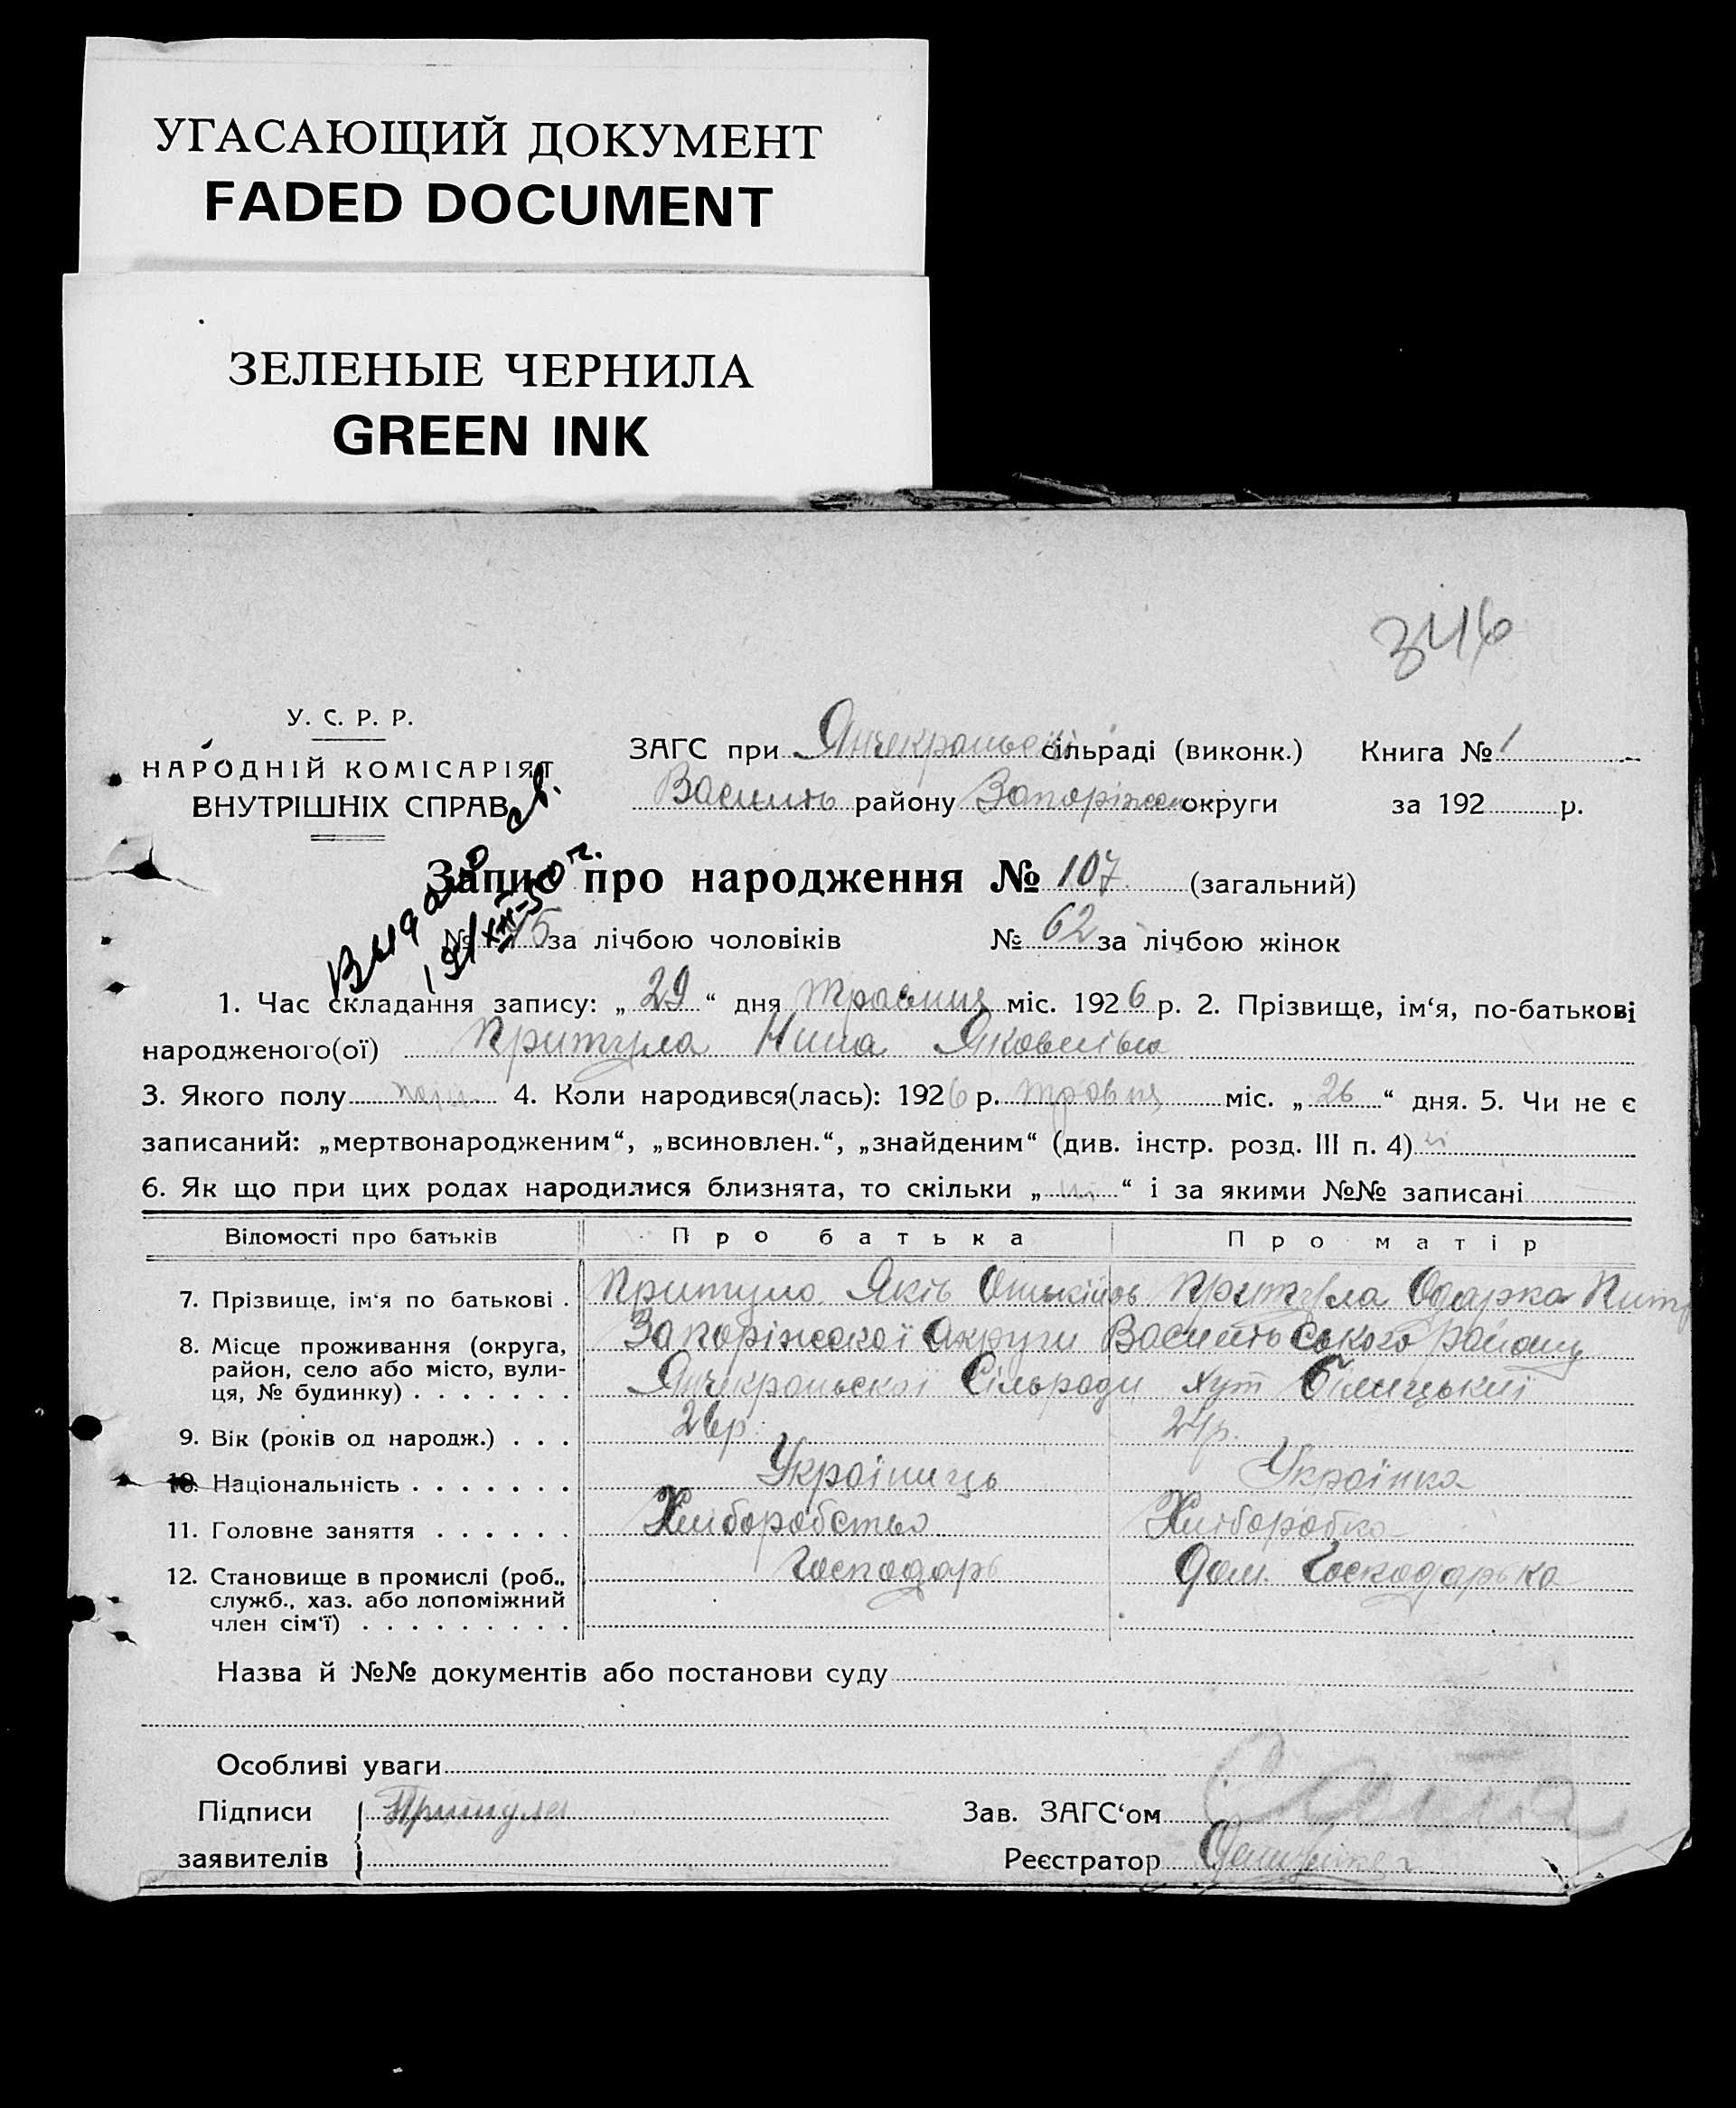 УГАСАЮЩИЙ ДОКУМЕНТ
FADED DOCUMENT
ЗЕЛЕНЫЕ ЧЕРНИЛА
GREEN INK
346
У. С. Р. Р.
НАРОДНІЙ КОМІСАРІЯТ
ВНУТРІШНІХ СПРАВ
ЗАГС при Янчекраньскі сільраді (виконк.) Книга № 1
Василів району Запоріжськ округи за 192 р.
Выдано св.
Запис про народження № 107 (загальний)
№ 45 за лічбою чоловіків № 62 за лічбою жінок
1. Час складання запису: „ 29 “ дня травня міс. 1926 р. 2. Прізвище, ім‘я, по-батькові
народженого(ої) Притула Нина Яковлівна
3. Якого полу 4. Коли народився(лась): 1926 р. травня міс. „ 26 “ дня. 5. Чи не є
записаний: „мертвонародженим“, „всиновлен.“, „знайденим“ (див. інстр. розд. III п. 4) ні
6. Як що при цих родах народилися близнята, то скільки „ ні “ і за якими №№ записані
Відомості про батьків Про батька Про матір
7. Прізвище, ім‘я по батькові . Притула Яків Притула Одарка
8. Місце проживання (округа, Запоріжської округи Васильського району
район, село або місто, вули-
ця, № будинку) . . . . . . . Янчекраньскої Сільради хут
9. Вік (років од народж.) . . . 26р. 24р.
10. Національність . . . . . . . Українець Українка
11. Головне заняття . . . . . . Хліборобство Хліборобка
12. Становище в промислі (роб., Господарь Дом. Господарька
служб., хаз. або допоміжний
член сім‘ї) . . . . . . . . .
Назва й №№ документів або постанови суду
Особливі уваги
Підписи Притула Зав. ЗАГС‘ом
заявителів Реєстратор